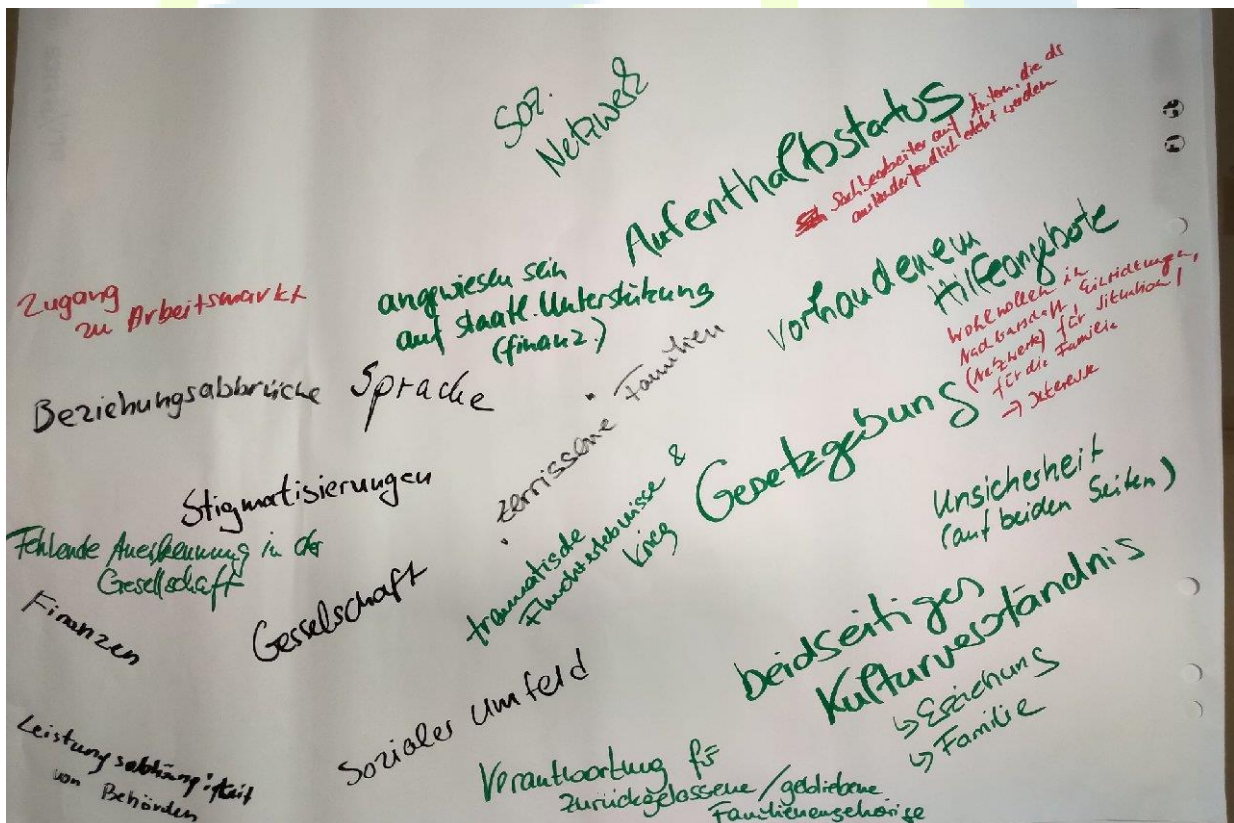 Soz.
Netzwerk
Aufenthaltsstatus
Sachbearbeiter auf Ämtern, die als
ausländerfeindlich erlebt werden
Zugang
zu Arbeitsmarkt
angewiesen sein
auf staatl. Unterstützung
(finanz.)
vorhandenem
Hilfeangebote
Wohlwollen in
Nachbarschaft, Einrichtungen,
(Netzwerk) für Situation!
für die Familie
→ Interesse
Beziehungsabbrüche
Sprache
· zerrissene Familien
·
Stigmatisierungen
traumatische
Fluchterlebnisse &
Krieg
Gesetzgebung
Unsicherheit
(auf beiden Seiten)
Fehlende Anerkennung in der
Gesellschaft
Finanzen
Gesselschaft
beidseitiges
Kulturverständnis
↳ Erziehung
↳ Familie
Leistungsabhängigkeit
von Behörden
Sozialer Umfeld
Verantwortung für
zurückgelassene/gebliebene
Familienangehörige